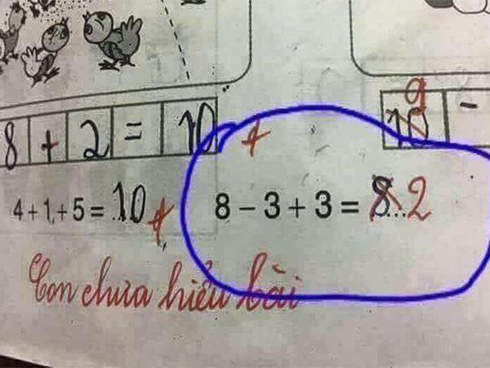 8 + 2 = 10
9
10 -
4 + 1 + 5 = 10
8 - 3 + 3 = 8 2
Con chưa hiểu bài